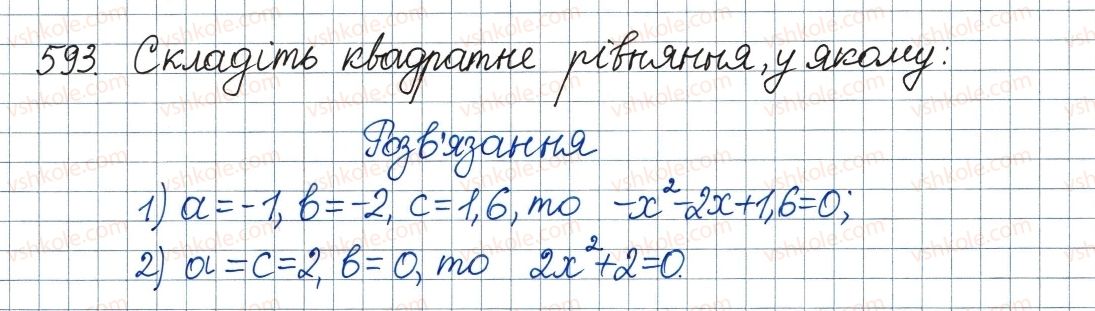 593. Складіть квадратне рівняння, у якому:
Розв'язання
1) a=-1, в=-2, c=1,6, то -x²-2x+1,6=0;
2) a=c=2, в=0, то 2x²+2=0.